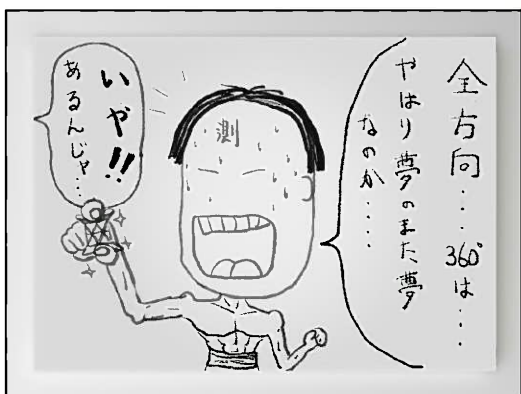 全方向・・・360°は・・・
やはり夢のまた夢
なのか・・・・
測
いや!!
あるんじゃ・・・